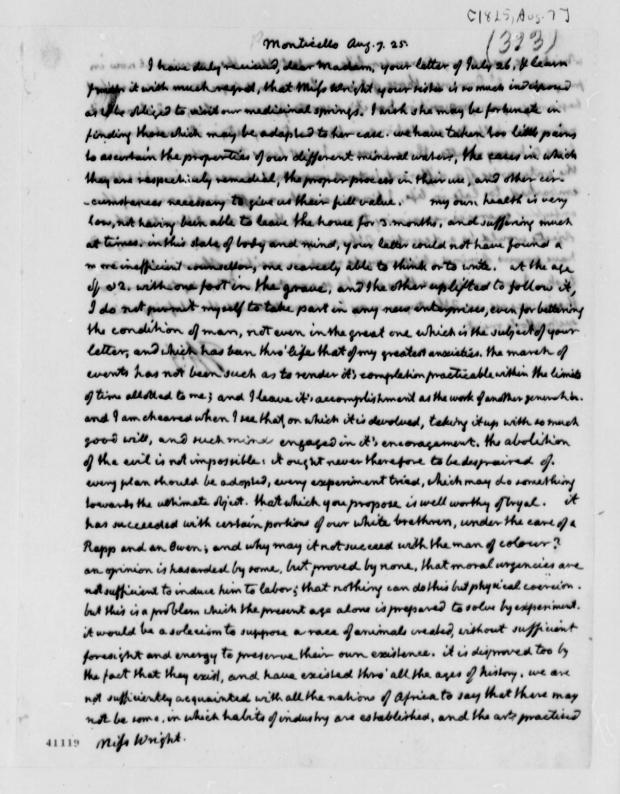 [1825, Aug. 7]
(323)
Monticello Aug. 7. 25.
I have duly recieved, dear Madam, your letter of July 26. & learn
from it with much regret, that Miss Wright your sister is so much indisposed
as to be obliged to visit our medicinal springs. I wish she may be fortunate in
finding those which may be adapted to her case. we have taken too little pains
to ascertain the properties of our different mineral waters, the cases in which
they are respectively remedial, the proper process in their use, and other cir-
-cumstances necessary to give us their full value. my own health is very
low, not having been able to leave the house for 3. months, and suffering much
at times. in this state of body and mind, your letter could not have found a
more inefficient counsellor, one scarcely able to think or to write. at the age
of 82. with one foot in the grave, and the other uplifted to follow it,
I do not permit myself to take part in any new enterprises, even for bettering
the condition of man, not even in the great one which is the subject of your
letter, and which has been thro' life that of my greatest anxieties. the march of
events has not been such as to render it's completion practicable within the limits
of time allotted to me; and I leave it's accomplishment as the work of another generation.
and I am cheared when I see that on which it is devolved, taking it up with so much
good will, and such mind engaged in it's encoragement. the abolition
of the evil is not impossible: it ought never therefore to be despaired of.
every plan should be adopted, every experiment tried, which may do something
towards the ultimate object. that which you propose is well worthy of tryal. it
has succeeded with certain portions of our white brethren, under the care of a
Rapp and an Owen; and why may it not succeed with the man of colour?
an opinion is hasarded by some, but proved by none, that moral urgencies are
not sufficient to induce him to labor; that nothing can do this but physical coercion.
but this is a problem which the present age alone is prepared to solve by experiment.
it would be a solecism to suppose a race of animals created, without sufficient
foresight and energy to preserve their own existence. it is disproved too by
the fact that they exist, and have existed thro' all the ages of history. we are
not sufficiently acquainted with all the nations of Africa to say that there may
not be some, in which habits of industry are established, and the arts practised
41119 Miss Wright.